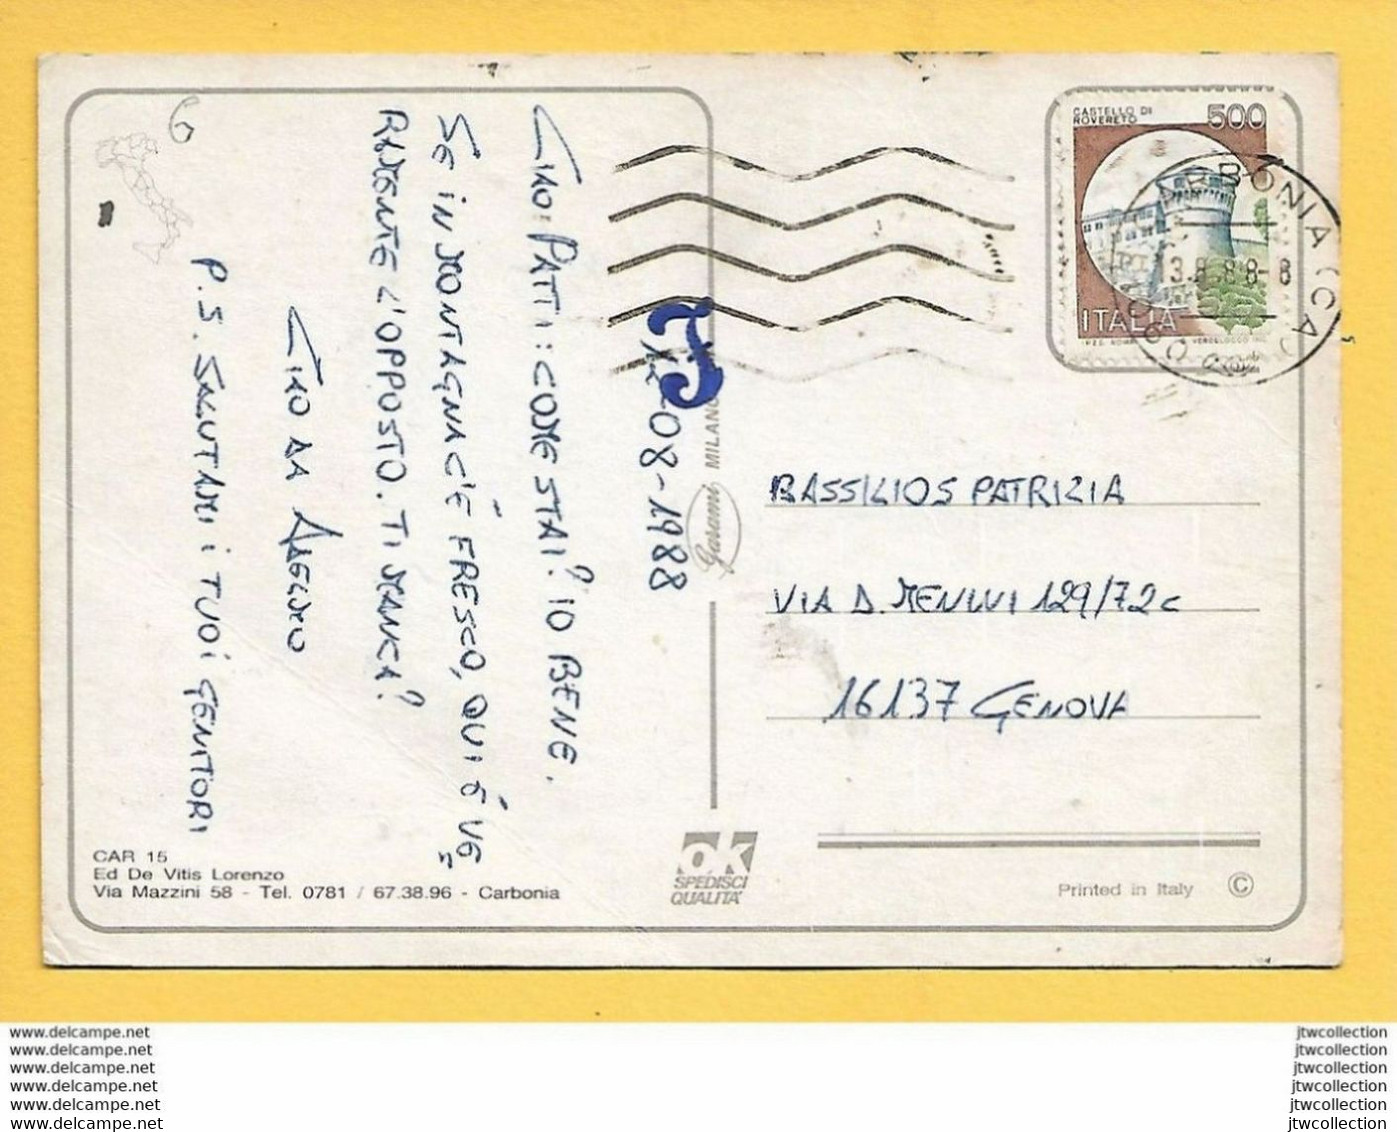 12-08-1988
CIAO PATTI: COME STAI? IO BENE.
SE IN MONTAGNA C'È FRESCO, QUI È VE
RAMENTE L'OPPOSTO. TI MANCA?
CIAO DA
P.S. SALUTAMI i TUOi GENITORI
6
CAR 15
Ed De Vitis Lorenzo
Via Mazzini 58 - Tel. 0781 / 67.38.96 - Carbonia
Garami MILANO
OK
SPEDISCI
QUALITA'
CASTELLO DI
ROVERETO
500
ITALIA
CARBONIA (CA)
13.8.88-8
BASSILIOS PATRIZIA
VIA D. MENINI 129/72c
16137 GENOVA
Printed in Italy ©
www.delcampe.net
www.delcampe.net
www.delcampe.net
www.delcampe.net
www.delcampe.net
www.delcampe.net
jtwcollection
jtwcollection
jtwcollection
jtwcollection
jtwcollection
jtwcollection